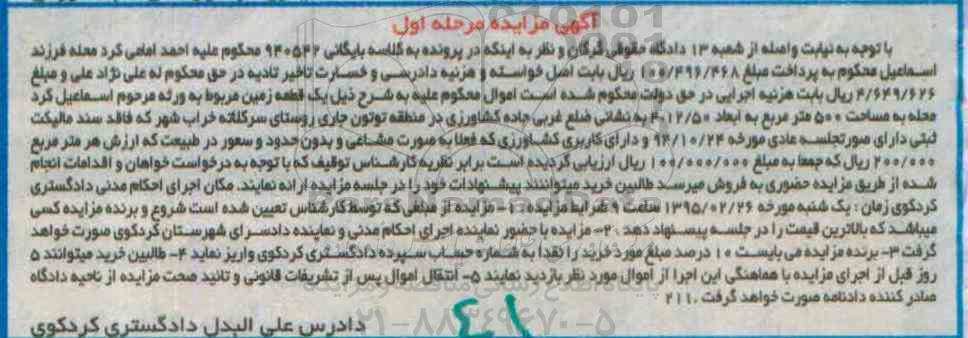 آگهی مزایده مرحله اول
با توجه به نیابت واصله از شعبه ۱۳ دادگاه حقوقی گرگان و نظر به اینکه در پرونده به کلاسه بایگانی ۹۴۰۵۴۲ محکوم علیه احمد امامی کرد محله فرزند
اسماعیل محکوم به پرداخت مبلغ ۱۰۰/۴۹۶/۴۶۸ ریال بابت اصل خواسته و هزینه دادرسی و خسارت تاخیر تادیه در حق محکوم له علی نژاد علی و مبلغ
۴/۶۴۹/۶۲۶ ریال بابت هزینه اجرایی در حق دولت محکوم شده است اموال محکوم علیه به شرح ذیل یک قطعه زمین مربوط به ورثه مرحوم اسماعیل کرد
محله به مساحت ۵۰۰ متر مربع به ابعاد ۱۲/۵۰*۴۰ به نشانی ضلع غربی جاده کشاورزی در منطقه توتون جاری روستای سرکلاته خراب شهر که فاقد سند مالیکت
ثبتی دارای صورتجلسه عادی مورخه ۹۴/۱۰/۲۴ و دارای کاربری کشاورزی که فعلا به صورت مشاعی و بدون حدود و سعور در طبیعت که ارزش هر متر مربع
۲۰۰/۰۰۰ ریال که جمعا به مبلغ ۱۰۰/۰۰۰/۰۰۰ ریال ارزیابی گردیده است برابر نظریه کارشناس توقیف که با توجه به درخواست خواهان و اقدامات انجام
شده از طریق مزایده حضوری به فروش میرسد طالبین خرید میتواننند پیشنهادات خود را در جلسه مزایده ارائه نمایند. مکان اجرای احکام مدنی دادگستری
کردکوی زمان : یک شنبه مورخه ۱۳۹۵/۰۲/۲۶ ساعت ۹ شرایط مزایده : ۱- مزایده از مبلغی که توسط کارشناس تعیین شده است شروع و برنده مزایده کسی
میباشد که بالاترین قیمت را در جلسه پیسنهاد دهد . ۲- مزایده با حضور نماینده اجرای احکام مدنی و نماینده دادسرای شهرستان کردکوی صورت خواهد
گرفت ۳- برنده مزایده می بایست ۱۰ درصد مبلغ مورد خرید را نقدا به شماره حساب سپرده دادگستری کردکوی واریز نماید ۴- طالبین خرید میتوانند ۵
روز قبل از اجرای مزایده با هماهنگی این اجرا از اموال مورد نظر بازدید نمایند ۵- انتقال اموال پس از تشریفات قانونی و تائید صحت مزایده از ناحیه دادگاه
صادر کننده دادنامه صورت خواهد گرفت . ۲۱۱ م
دادرس علی البدل دادگستری کردکوی
۰۲۱-۸۸۳۴۹۶۷۰-۵